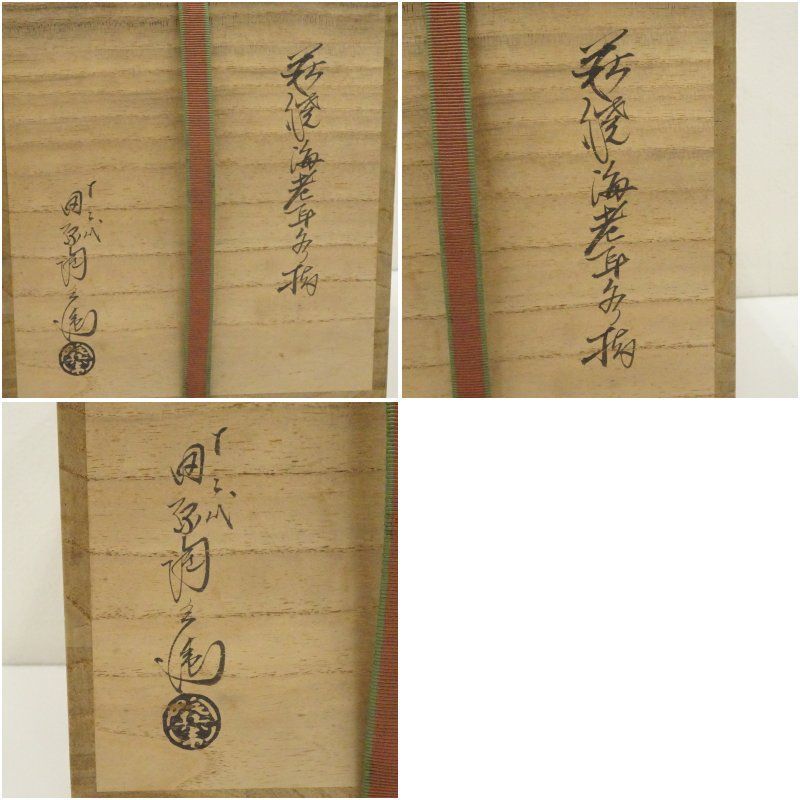 萩焼海老耳水指
田原陶兵衛
萩焼海老耳水指
田原陶兵衛